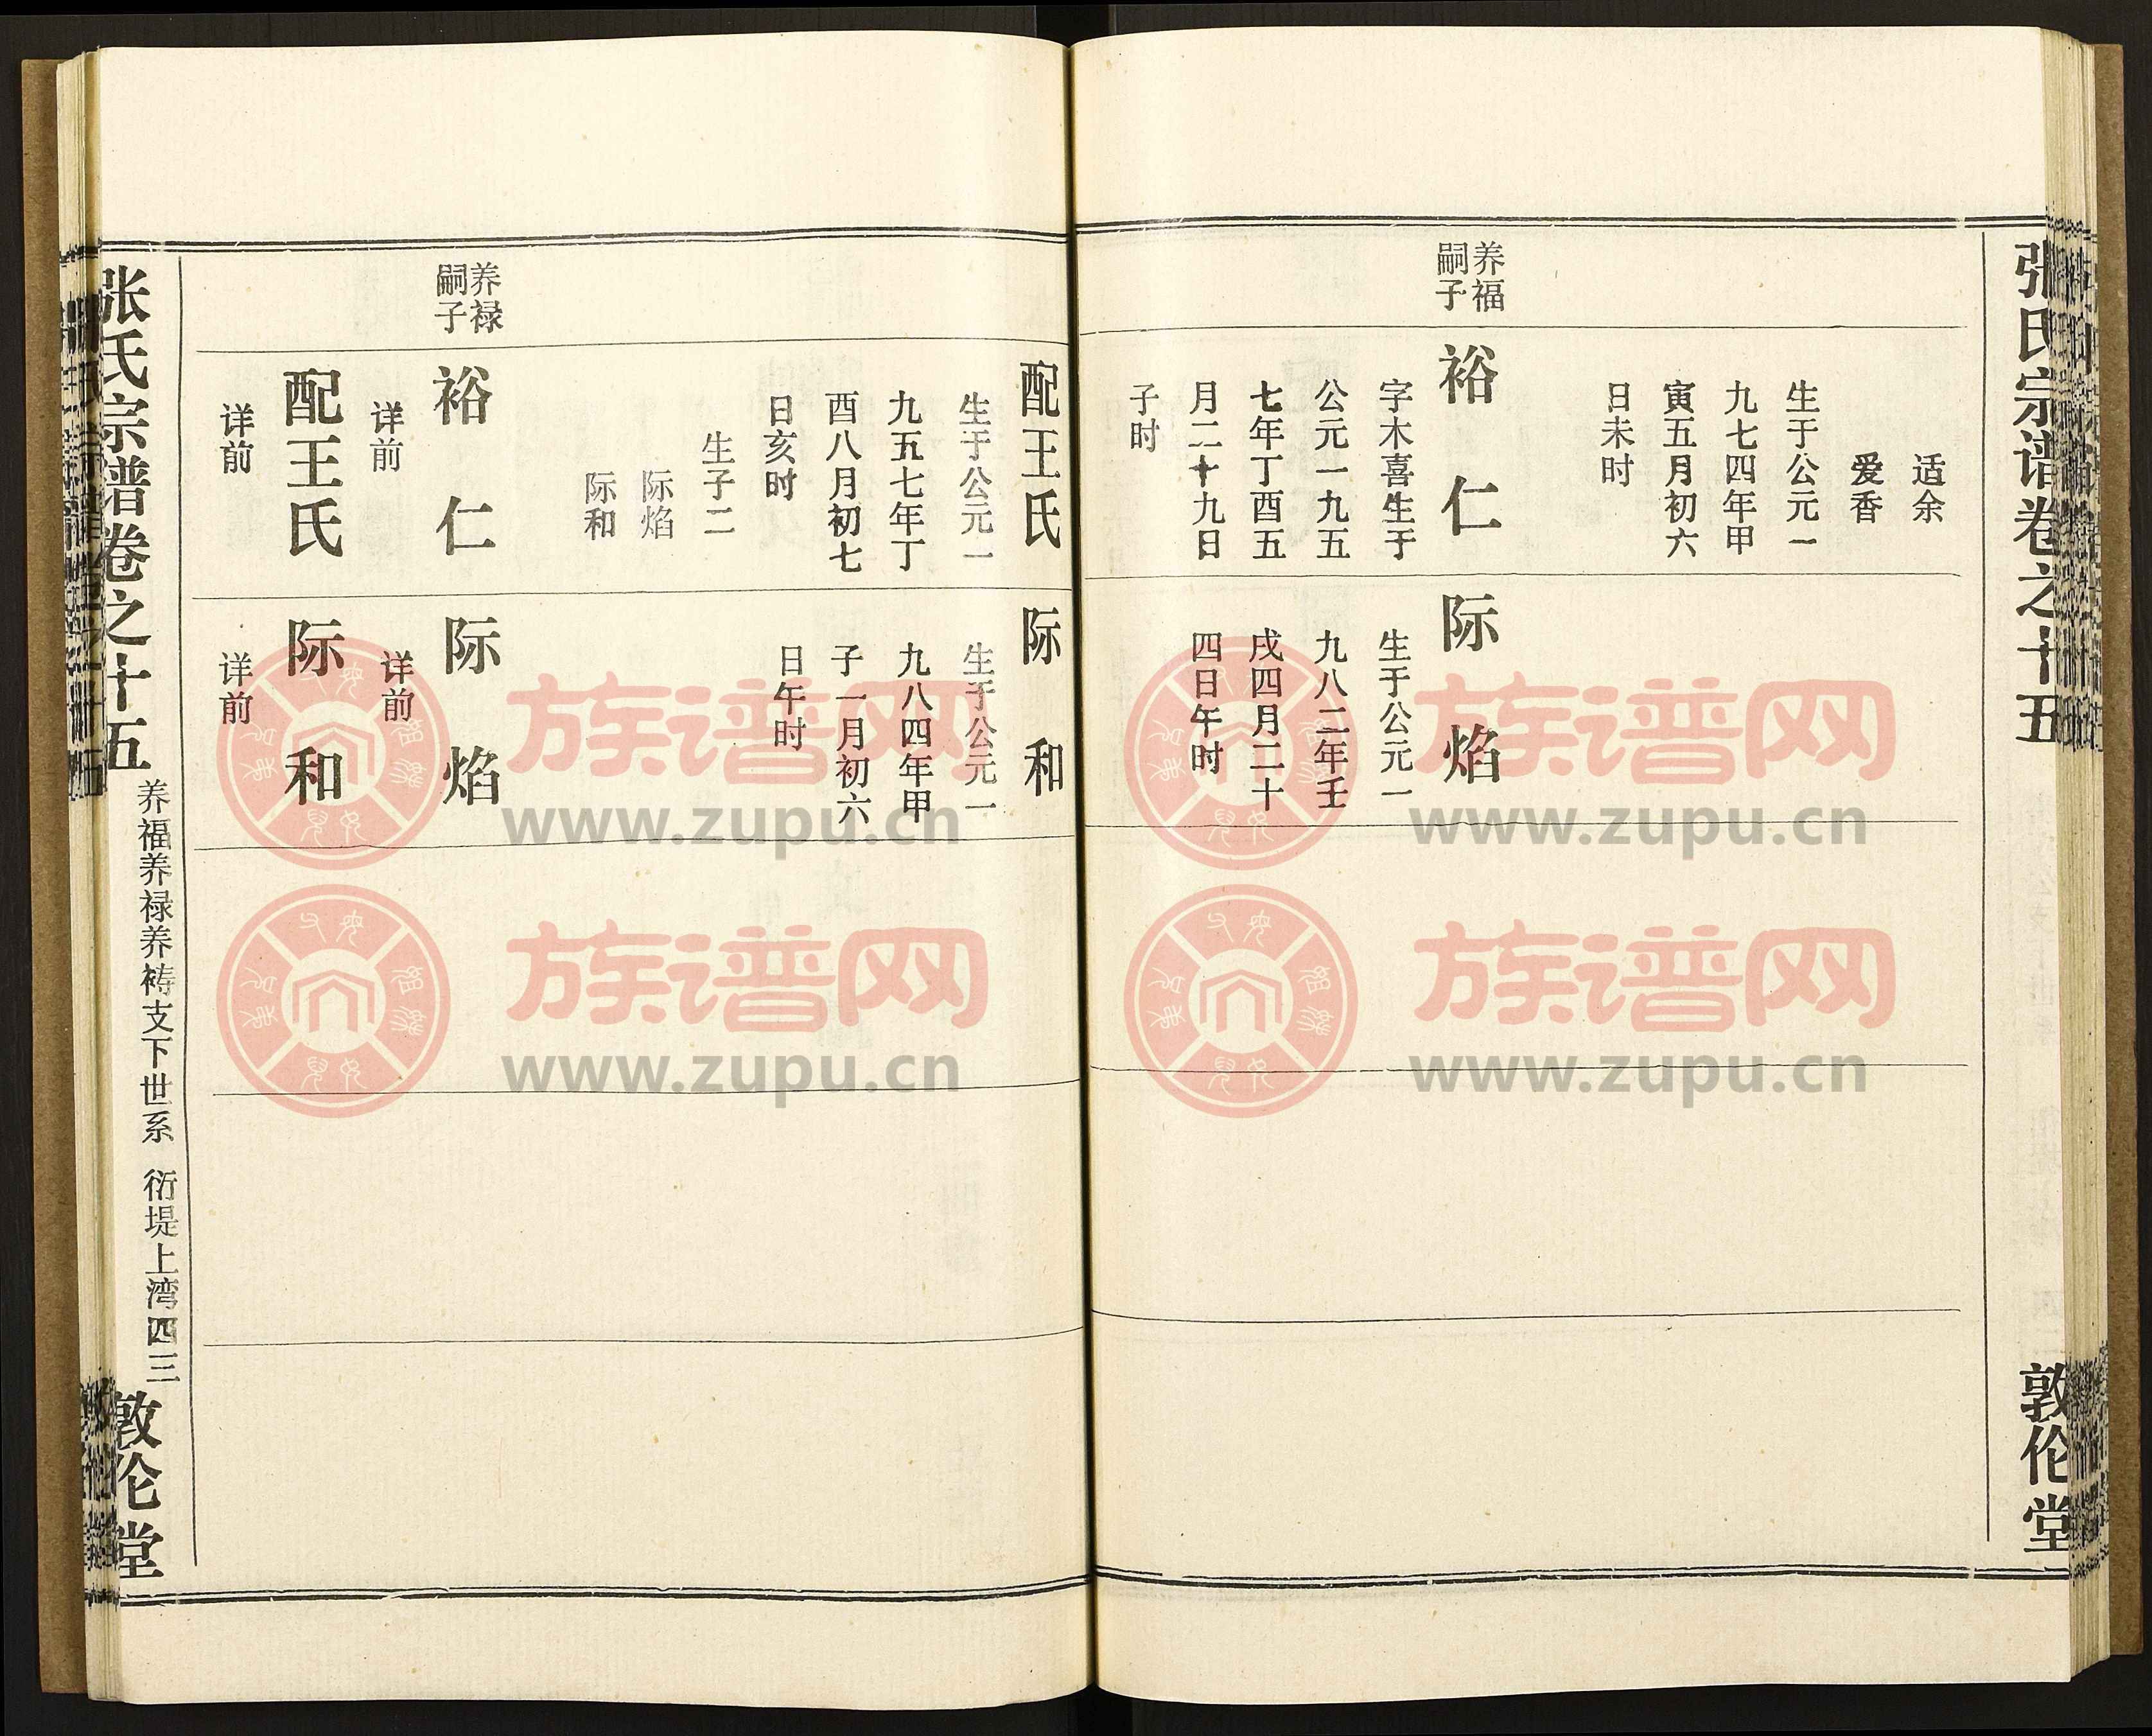 张氏宗谱卷之十五
敦伦堂
适余
爱香
生于公元一
九七四年甲
寅五月初六
日未时
养福
嗣子
裕仁
字木喜生于
公元一九五
七年丁酉五
月二十九日
子时
际焰
生于公元一
九八二年壬
戌四月二十
四日午时
配王氏
生于公元一
九五七年丁
酉八月初七
日亥时
生子二
际焰
际和
际和
生于公元一
九八四年甲
子一月初六
日午时
养禄
嗣子
裕仁
详前
配王氏
详前
际焰
详前
际和
详前
张氏宗谱卷之十五
养福养禄养祷支下世系
衍堤上湾四三
敦伦堂
族谱网
www.zupu.cn
族谱网
www.zupu.cn
族谱网
www.zupu.cn
族谱网
www.zupu.cn